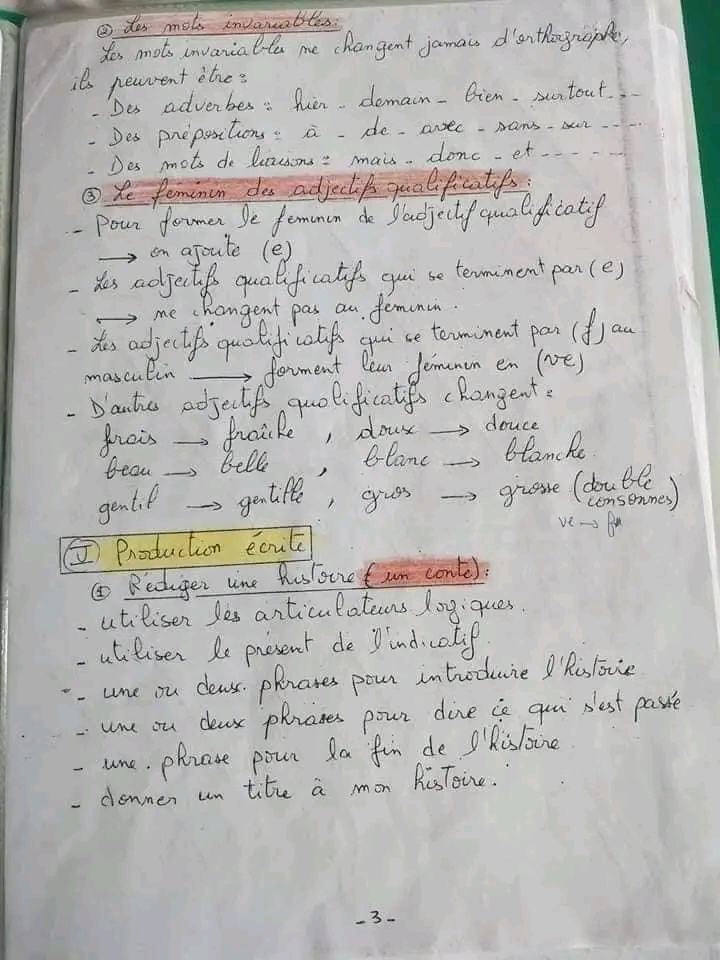 ② Les mots invariables:
Les mots invariables ne changent jamais d'orthographe,
ils peuvent être :
- Des adverbes : hier - demain - bien - surtout ...
- Des prépositions : à - de - avec - sans - sur ----
- Des mots de liaisons : mais - donc - et ------
③ Le féminin des adjectifs qualificatifs :
- Pour former le feminin de l'adjectif qualificatif
→ on ajoute (e)
- Les adjectifs qualificatifs qui se terminent par (e)
→ ne changent pas au féminin.
- Les adjectifs qualificatifs qui se terminent par (f) au
masculin → forment leur féminin en (ve)
- D'autres adjectifs qualificatifs changent :
frais → fraîche , doux → douce
beau → belle , blanc → blanche
gentil → gentille , gros → grosse (double
consonnes)
ve →
V Production écrite
① Rédiger une histoire (un conte) :
- utiliser les articulateurs logiques.
- utiliser le présent de l'indicatif.
- une ou deux phrases pour introduire l'histoire
- une ou deux phrases pour dire ce qui s'est passé
- une phrase pour la fin de l'histoire
- donner un titre à mon histoire.
- 3 -